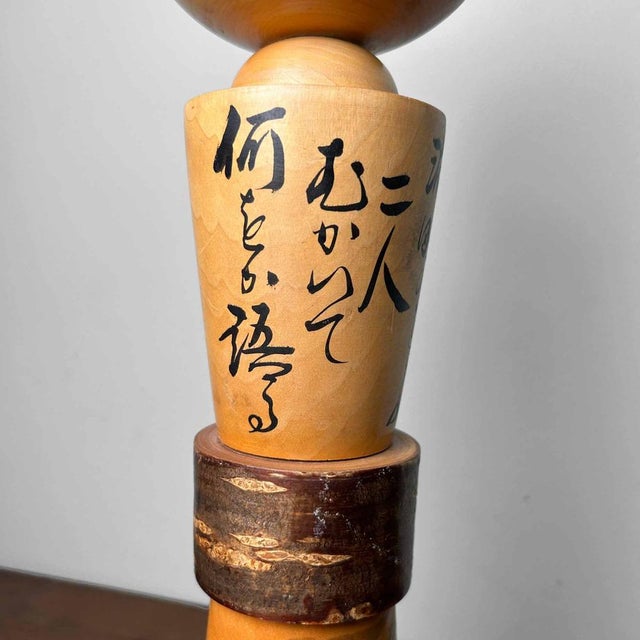 二人
むかいて
何をか語る